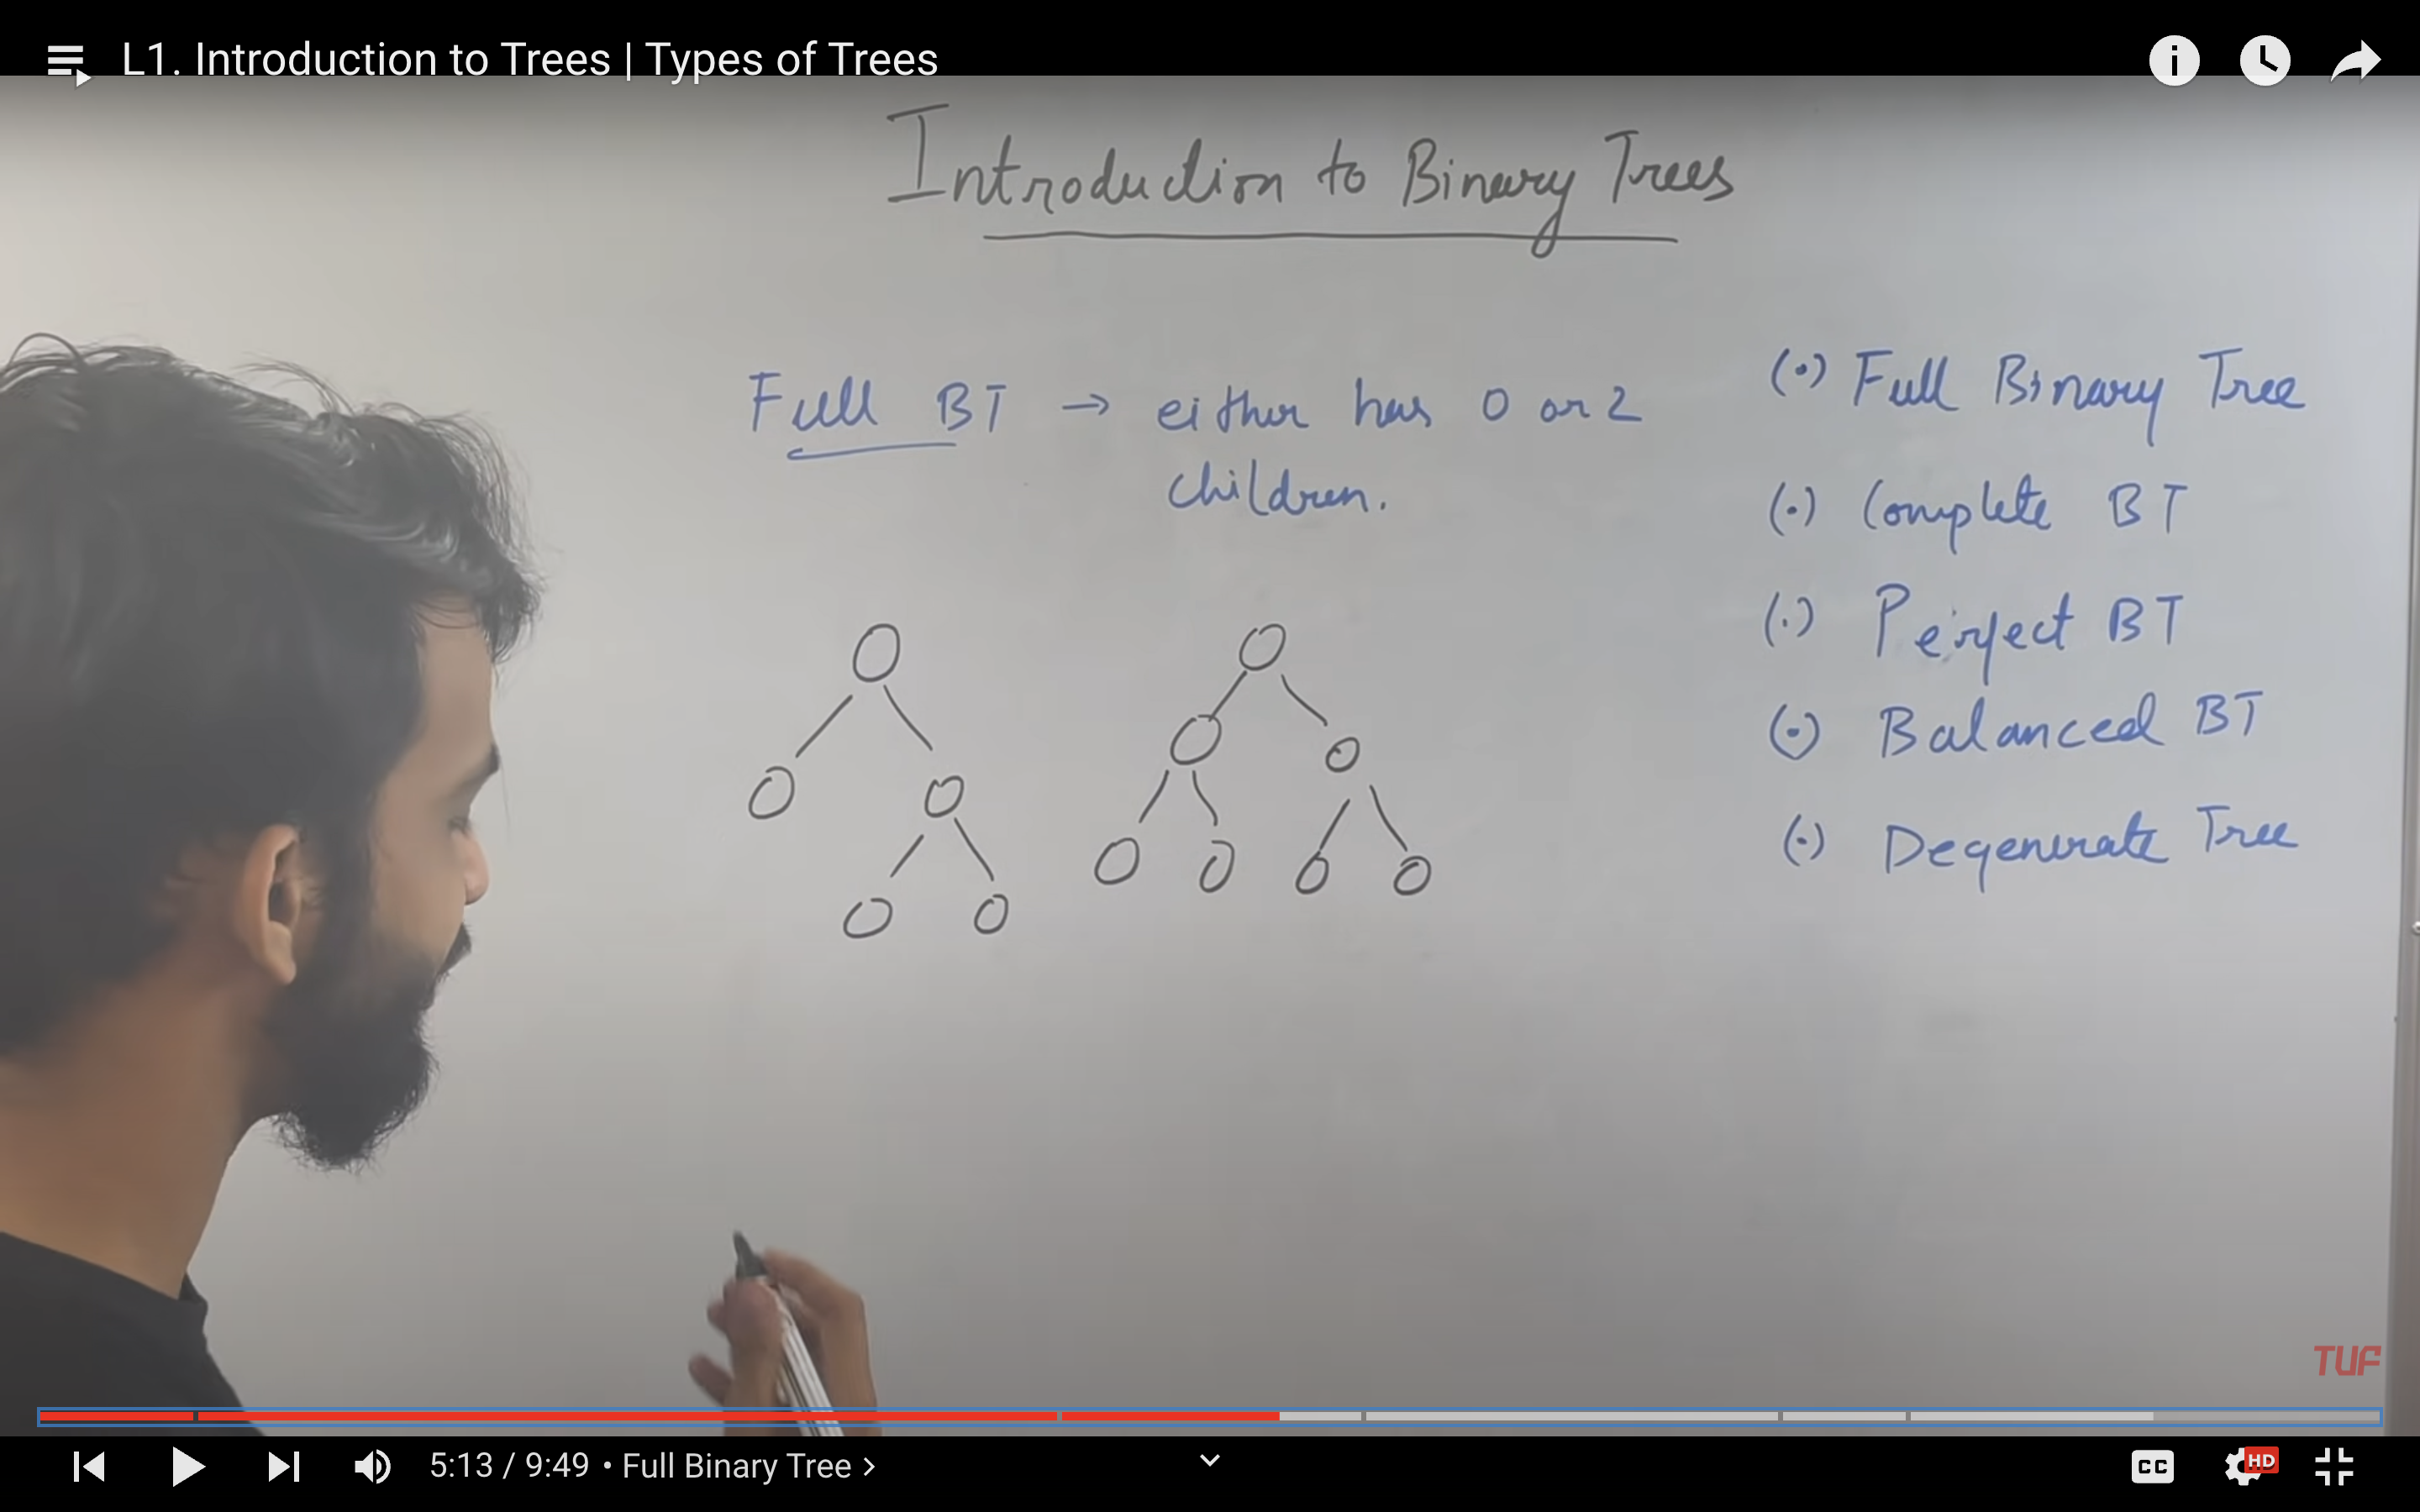 L1. Introduction to Trees | Types of Trees
Introduction to Binary Trees
Full BT → either has 0 or 2
children.
(•) Full Binary Tree
(•) Complete BT
(•) Perfect BT
(•) Balanced BT
(•) Degenerate Tree
TUF
5:13 / 9:49 • Full Binary Tree >
CC
HD